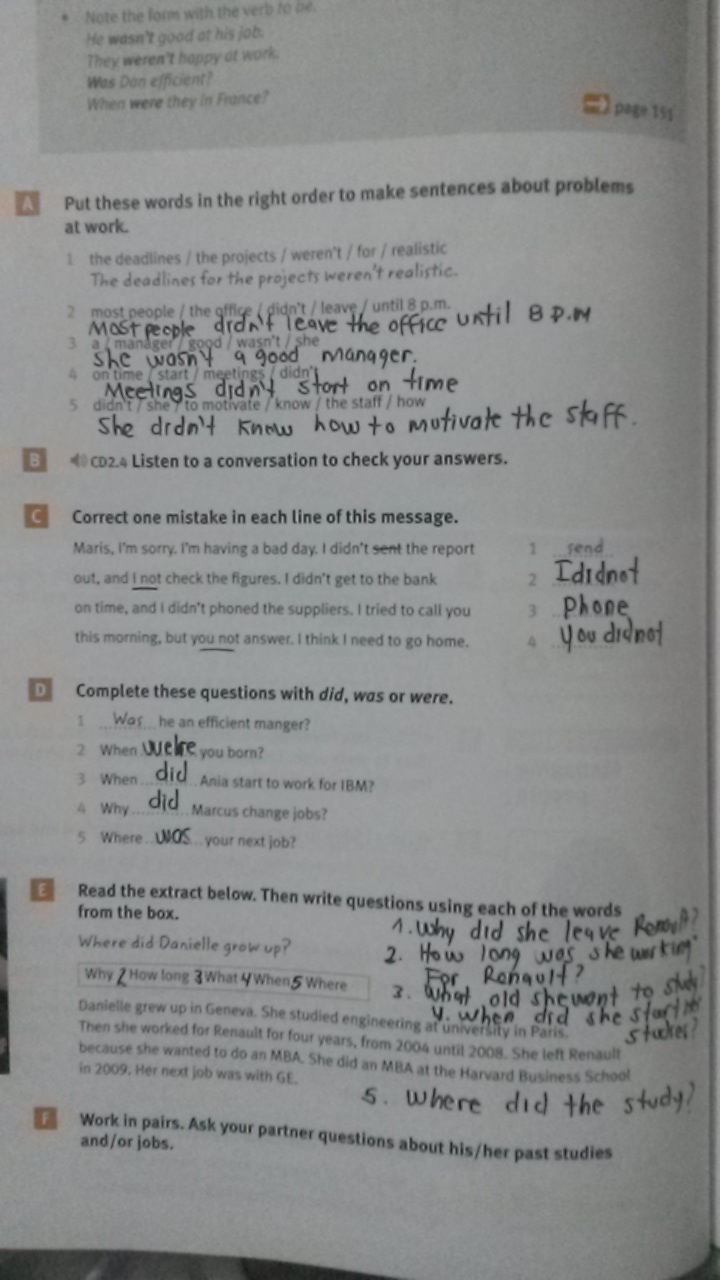 • Note the form with the verb to be.
He wasn't good at his job.
They weren't happy at work.
Was Dan efficient?
When were they in France?
page 151
A Put these words in the right order to make sentences about problems
at work.
1 the deadlines / the projects / weren't / for / realistic
The deadlines for the projects weren't realistic.
2 most people / the office / didn't / leave / until 8 p.m.
Most people didn't leave the office until 8 P.M
3 a / manager / good / wasn't / she
She wasn't a good manager.
4 on time / start / meetings / didn't
Meetings didn't start on time
5 didn't / she / to motivate / know / the staff / how
She didn't know how to mutivate the staff.
B CD2.4 Listen to a conversation to check your answers.
C Correct one mistake in each line of this message.
Maris, I'm sorry. I'm having a bad day. I didn't sent the report 1 send
out, and I not check the figures. I didn't get to the bank 2 I didnot
on time, and I didn't phoned the suppliers. I tried to call you 3 Phone
this morning, but you not answer. I think I need to go home. 4 you didnot
D Complete these questions with did, was or were.
1 Was he an efficient manger?
2 When were you born?
3 When did Ania start to work for IBM?
4 Why did Marcus change jobs?
5 Where was your next job?
E Read the extract below. Then write questions using each of the words
from the box.
1. Why did she leave Renault?
Where did Danielle grow up?
2. How long was she working
For Renault?
Why 2 How long 3 What 4 When 5 Where
3. What old she want to study?
4. when did she start her
studies?
Danielle grew up in Geneva. She studied engineering at university in Paris.
Then she worked for Renault for four years, from 2004 until 2008. She left Renault
because she wanted to do an MBA. She did an MBA at the Harvard Business School
in 2009. Her next job was with GE.
5. Where did the study?
F Work in pairs. Ask your partner questions about his/her past studies
and/or jobs.